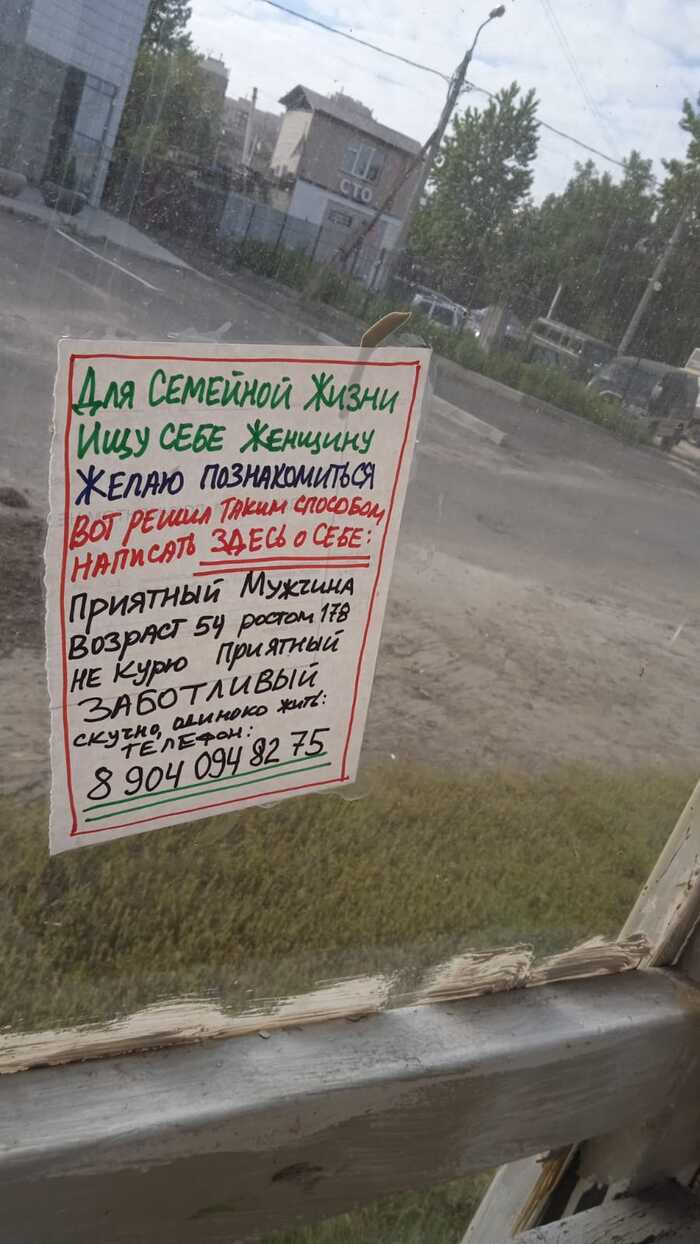 СТО
Для СЕМЕЙНОЙ ЖИЗНИ
Ищу СЕБЕ Женщину
ЖЕЛАЮ ПОЗНАКОМИТЬСЯ
ВОТ РЕШИЛ ТАКИМ СПОСОБОМ
НАПИСАТЬ ЗДЕСЬ о СЕБЕ:
ПРИЯТНЫЙ МУЖЧИНА
ВОЗРАСТ 54 ростом 178
НЕ КУРЮ ПРИЯТНЫЙ
ЗАБОТЛИВЫЙ
скучно, одиноко жить:
ТЕЛЕФОН:
8 904 094 82 75